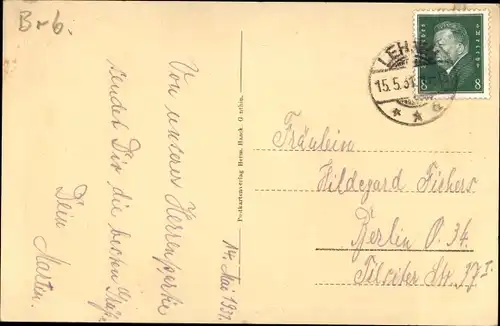 Brb.
Von unserer Herrenpartie
sendet Dir die besten Grüße
Dein
Martin.
14. Mai 1931.
Postkartenverlag Herm. Haack.
LEH
15.5.31
8 8
Fräulein
Hildegard Fishers
Berlin O. 34.
Tilsiter Str.